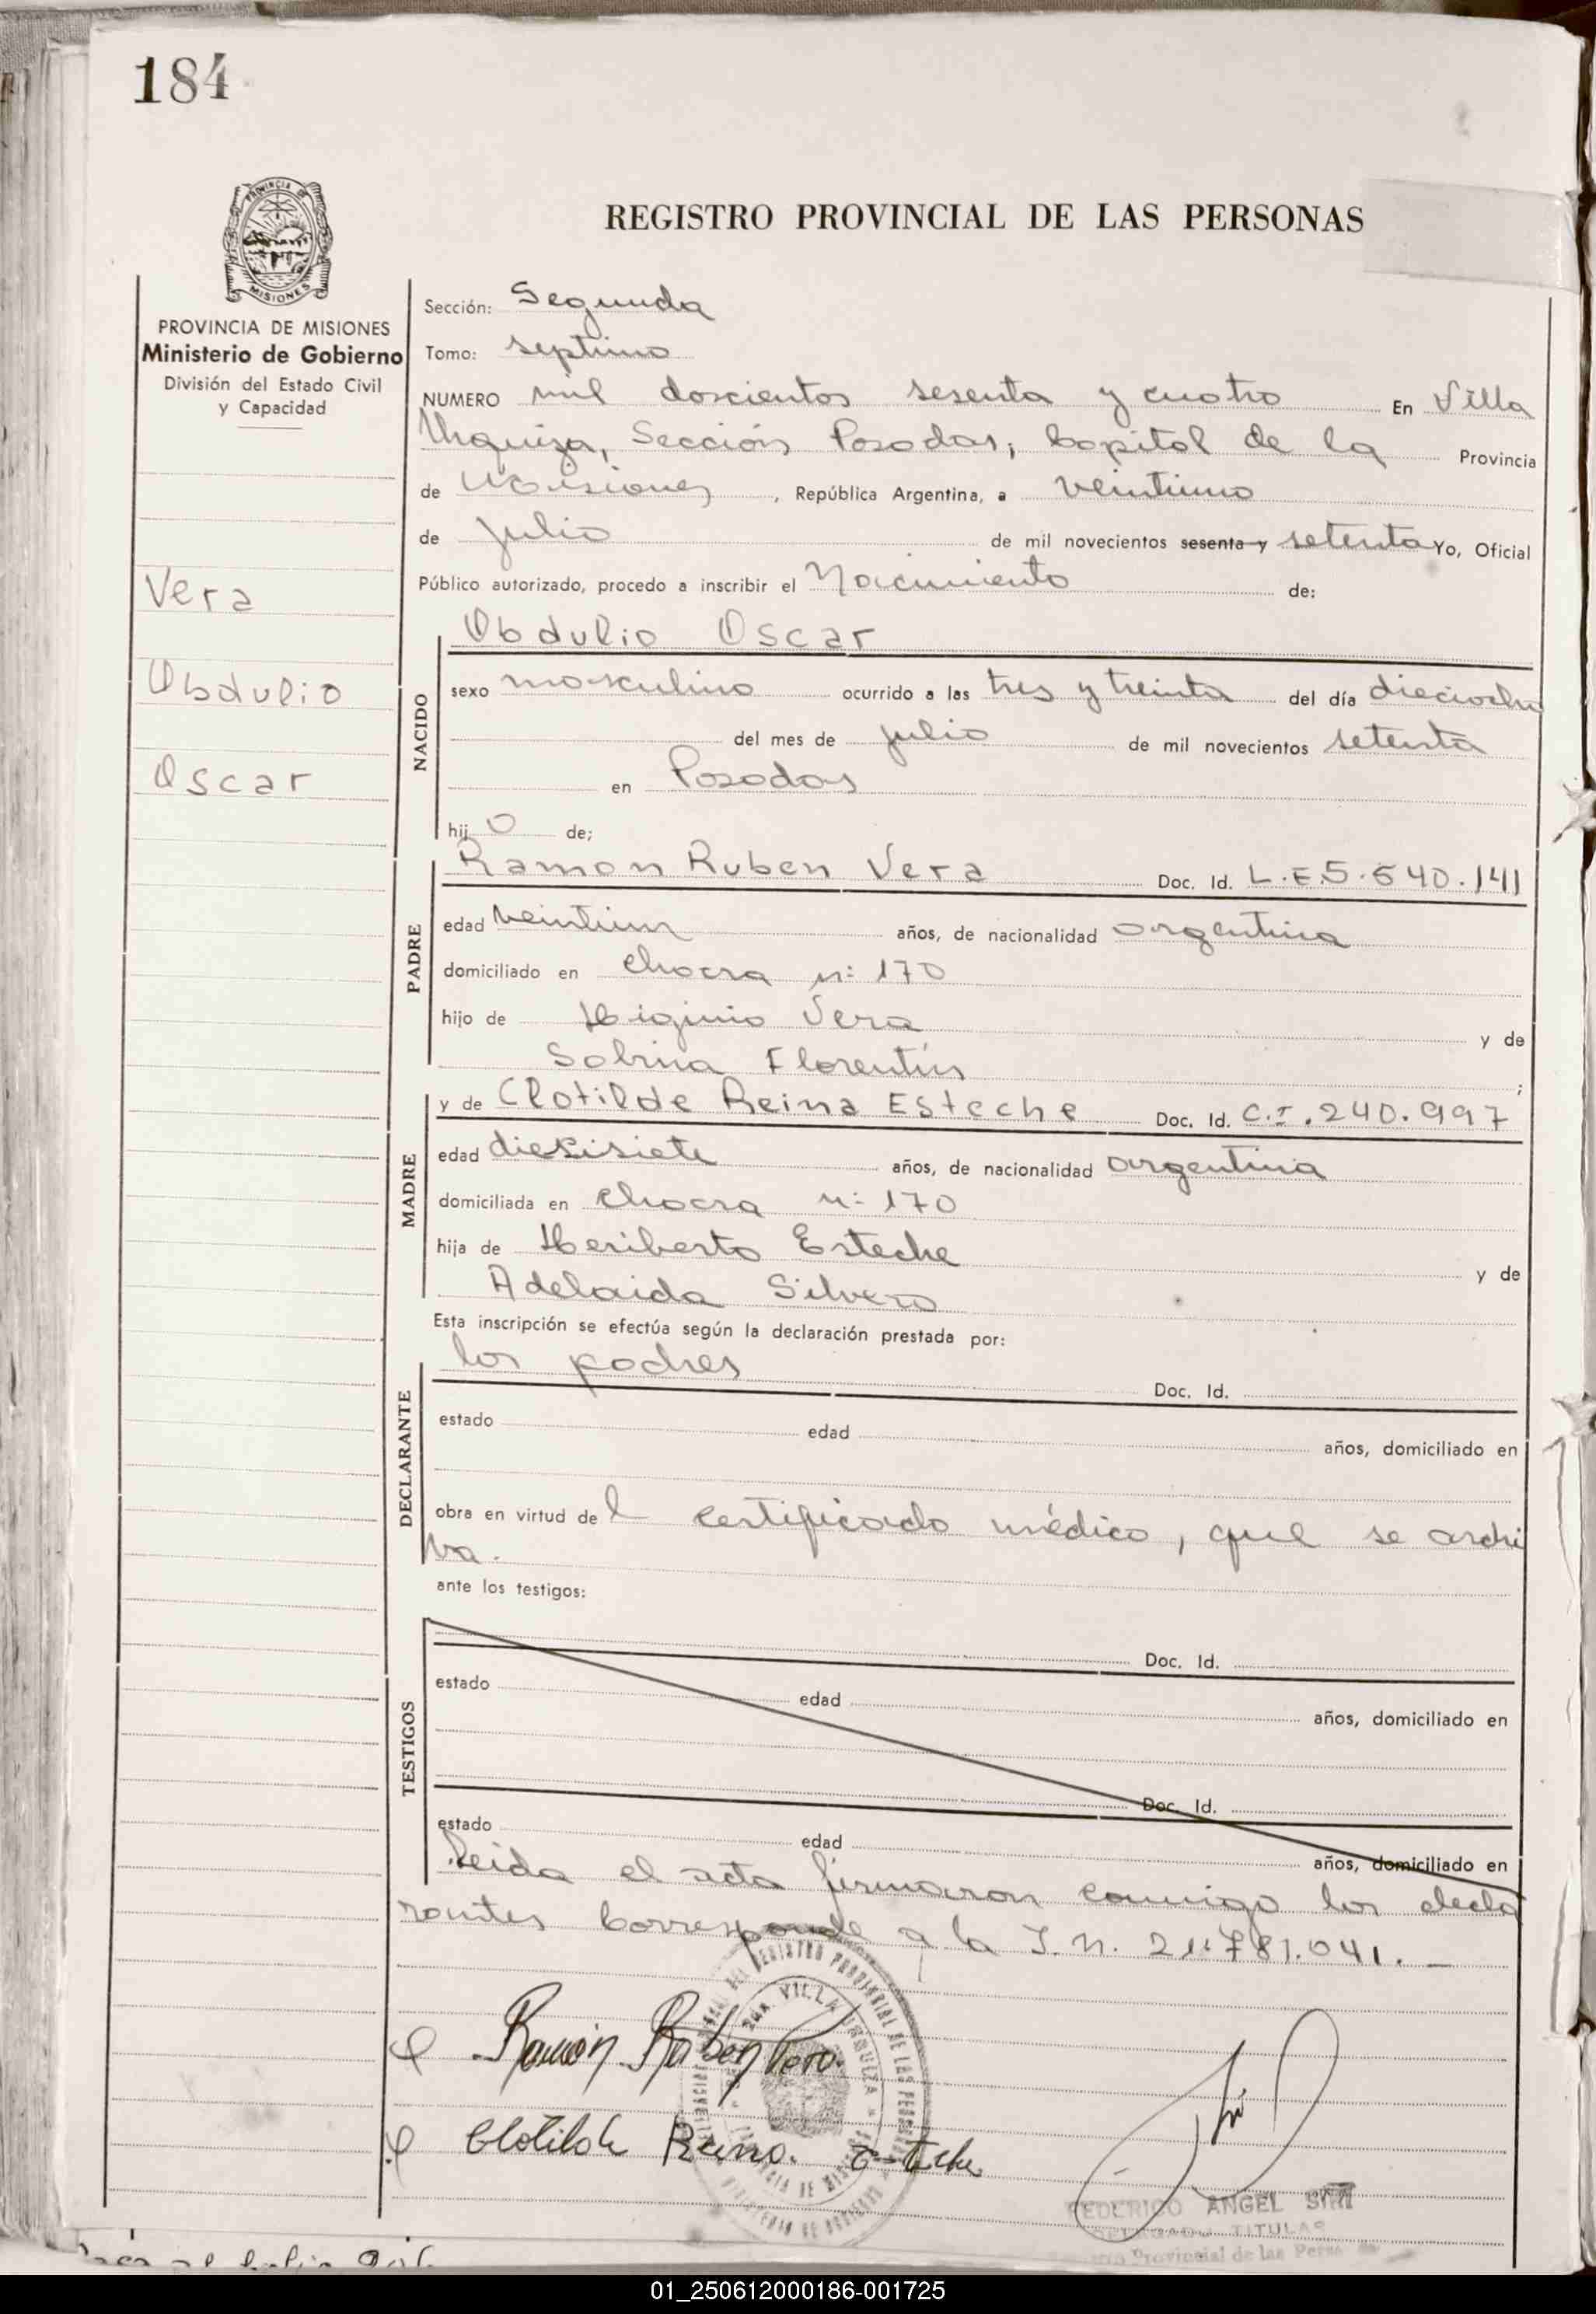 184
PROVINCIA DE
MISIONES
PROVINCIA DE MISIONES
Ministerio de Gobierno
División del Estado Civil
y Capacidad
Vera
Obdulio
Oscar
REGISTRO PROVINCIAL DE LAS PERSONAS
Sección: Segunda
Tomo: septimo
NUMERO mil doscientos sesenta y cuatro En Villa
Urquiza, Sección Posadas, Capital de la Provincia
de Misiones, República Argentina, a veintiuno
de julio de mil novecientos sesenta y setenta Yo, Oficial
Público autorizado, procedo a inscribir el Nacimiento de:
Obdulio Oscar
NACIDO
sexo masculino ocurrido a las tres y treinta del día dieciocho
del mes de julio de mil novecientos setenta
en Posadas
hijo de;
Ramon Ruben Vera Doc. Id. L.E.5.640.141
PADRE
edad veintiun años, de nacionalidad argentina
domiciliado en chacra n: 170
hijo de Higinio Vera y de
Sabina Florentín ;
y de Clotilde Reina Esteche Doc. Id. C.I.240.997
MADRE
edad diesisiete años, de nacionalidad argentina
domiciliada en chacra n: 170
hija de Heriberto Esteche y de
Adelaida Silvero
Esta inscripción se efectúa según la declaración prestada por:
los padres Doc. Id.
DECLARANTE
estado edad años, domiciliado en
obra en virtud del certificado médico, que se archi
va.
ante los testigos:
Doc. Id.
TESTIGOS
estado edad años, domiciliado en
Doc. Id.
estado edad años, domiciliado en
Leida el acta firmaron conmigo los decla
rantes Corresponde a la I.N. 21.781.041.
Ramón Rubén Vera
Clotilde Reina Esteche
REGISTRO PROVINCIAL DE LAS PERSONAS
VILLA URQUIZA
FEDERICO ANGEL
DELEGADO TITULAR
Provincial de las
01_250612000186-001725